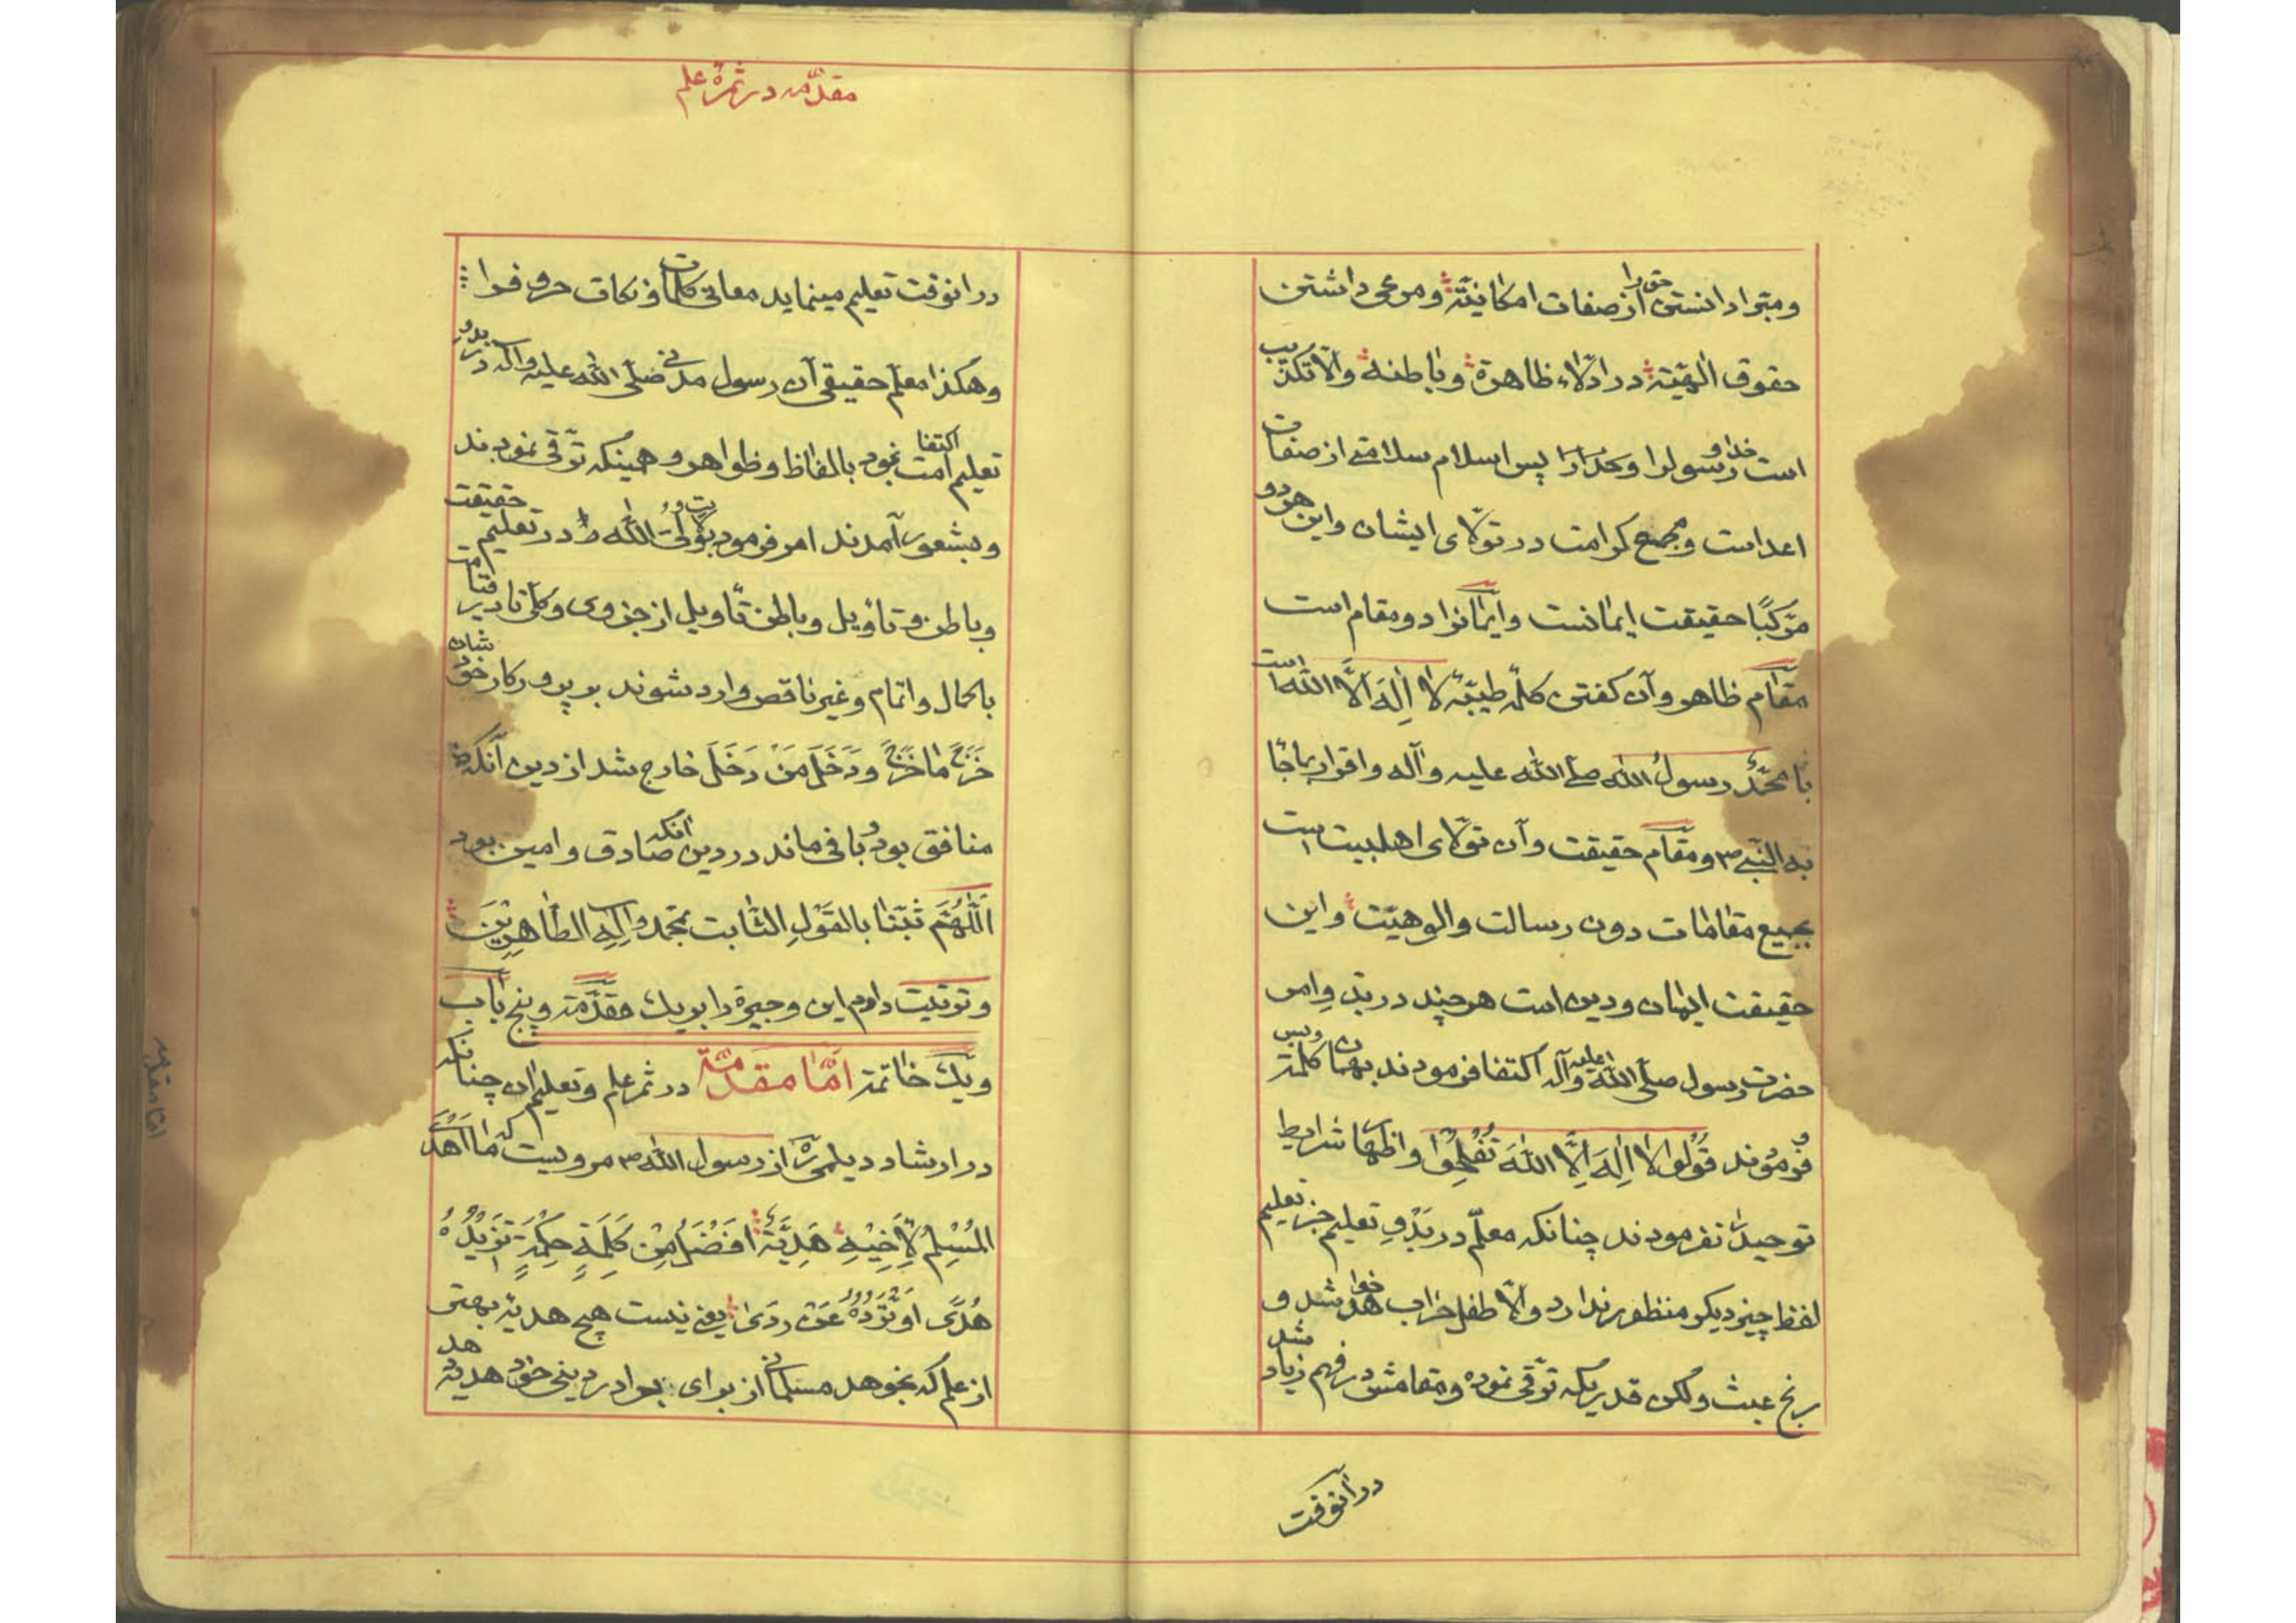 ومبّرا دانستن حق را از صفات امکانیّة ومرعی داشتن
حقوق الهیّة در ادلّاء ظاهرة وباطنة والّا تکذیب
است خدا و رسولرا وخدا را پس اسلام سلامتی از صفات
اعداست ومجمع کرامت در تولّای ایشان واین هردو
مرّکبًا حقیقت ایمانست وایمانرا دو مقام است
مقام ظاهر وآن گفتن کلمّه طیّبّه لا اِلٰهَ اِلَّا الله است
با محمّدٌ رسولُ الله صلّی الله علیه وآله واقرار بماجٓا
به النّبی ص ومقام حقیقت وآن تولّای اهلبیت است
بجمیع مقامات دون رسالت والوهیّت واین
حقیقت ایمان ودین است هرچند در بدوِ امر
حضرت رسول صلّی الله علیه وآله اکتفا فرمودند بهمان کلمة وبس
فرمودند قُولُوا لا اِلٰهَ اِلَّا اللهَ تُفْلِحُوا واظهار شرایط
توحید را نفرمودند چنانکه معلّم در بَدْوِ تعلیم جز تعلیم
لفظ چیز دیگر منظور ندارد والّا طفل خراب خواهد شد و
رنج عبث ولکن قدریکه ترّقی نموده ومقامش در فهم زیاد شد
در آنوقت
مقدّمه در ثمرهٔ علم
در انوقت تعلیم مینماید معانی کلمات ونکات حروفرا
وهکذا معلّم حقیقی آن رسول مدنی صلّی الله علیه وآله در بدو
تعلیم امت اکتفا نمود بالفاظ وظواهر وهمینکه ترّقی نمودند
وبشعور آمدند امر فرمود بولایت ولیّ الله را در تعلیم حقیقت
وباطن وتأویل وباطن تأویل از جزوی وکلّی تا در قیامت
باکمال واتمام وغیر ناقص وارد شوند بر پرورکار خودشان
خَرَجَ مٰا خَرَجَ ودَخَلَ مَنْ دَخَلَ خارج شد از دین آنکه
منافق بود و باقی ماند در دین آنکه صادق وامین بود
اَللّٰهُمَّ ثَبّتنا بالقَوْلِ الثّابت بمحّمد وآلِهِ الطّاهِرِیْنَ
وترتیب دادم این وجیزة را بر یک مقدّمة وپنج باب
ویک خاتمة امّا مقدّمة در ثمر علم وتعلیم آن چنانکه
در ارشاد دیلمی ره از رسول الله ص مرویست که مٰا اَهْدَی
المُسْلِمُ لِاَخِیْهِ هَدِیَّةً اَفْضَلَ مِنْ کَلِمَةِ حِکْمَةٍ تَزِیْدُهُ
هُدًی اَوْ تَرُدُّهُ عَنْ رَدًی یعنی نیست هیچ هدیة بهتر
از علم که بخوهد مسلمانی از برای برادر دینی خود هدیة دهد
امّا مقدّمه